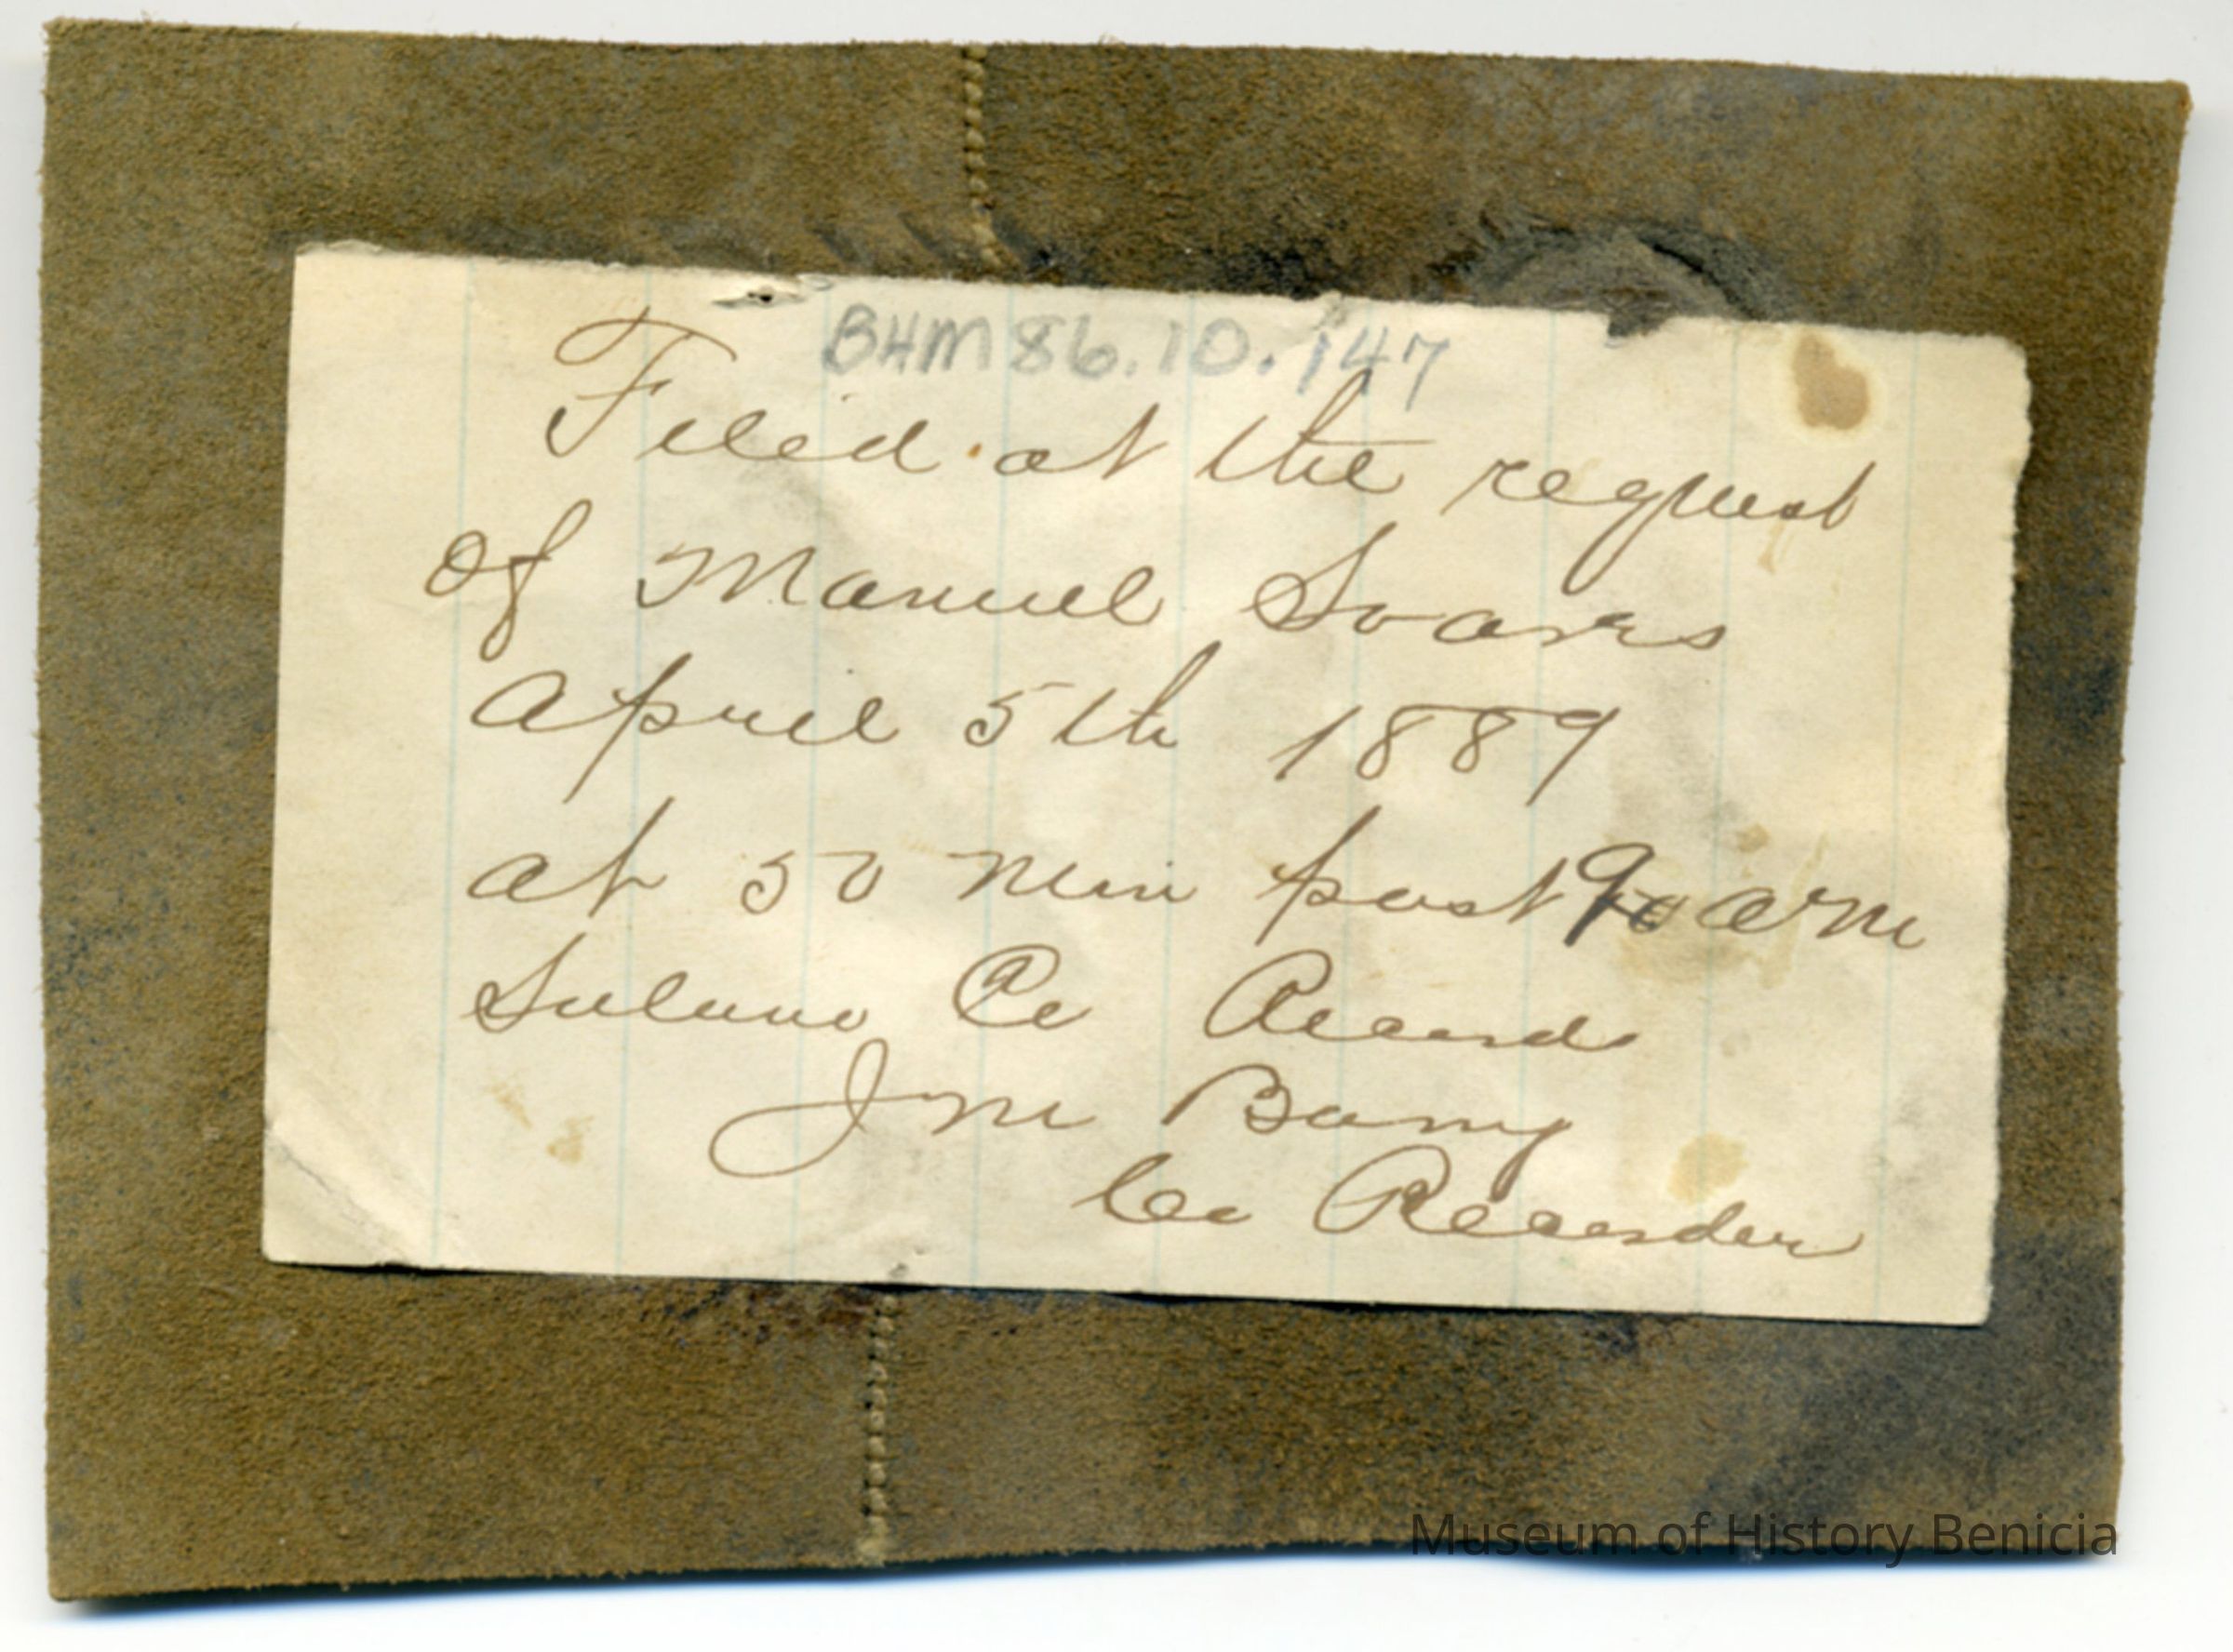 BHM 86.10.147
Filed at the request
of Manuel Soars
April 5th 1889
at 50 min past 9 am
Solano Co Records
Jno Barry
Co Recorder
Museum of History Benicia